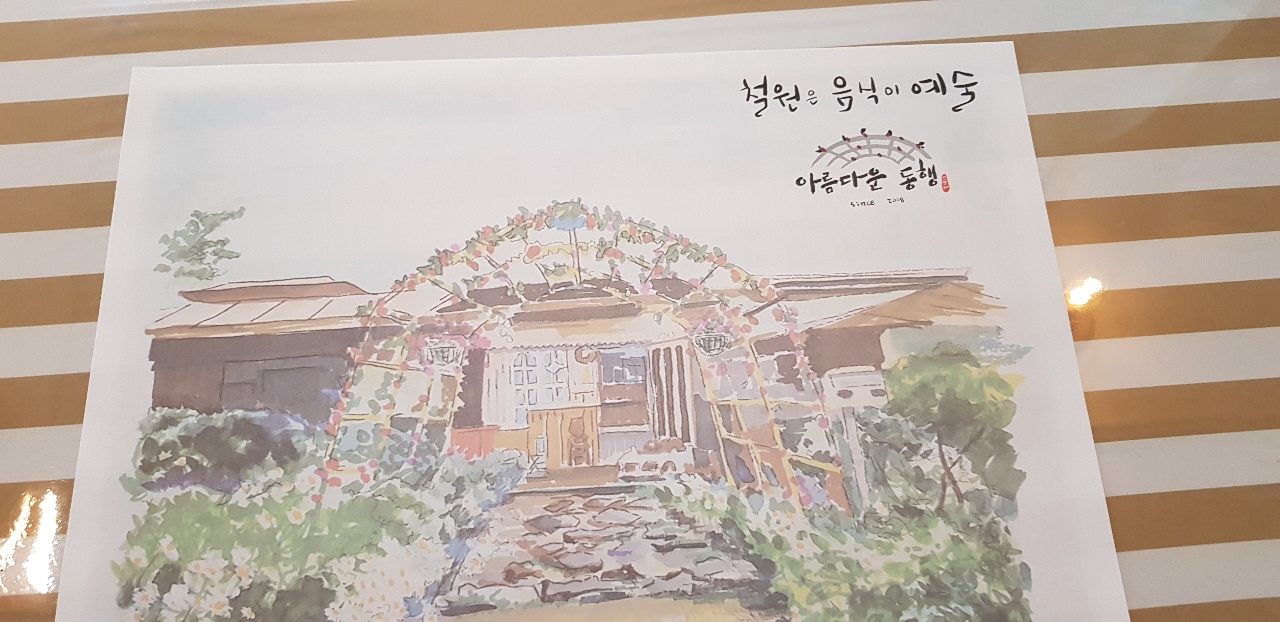 철원은 음식이 예술
아름다운 동행
since 2008